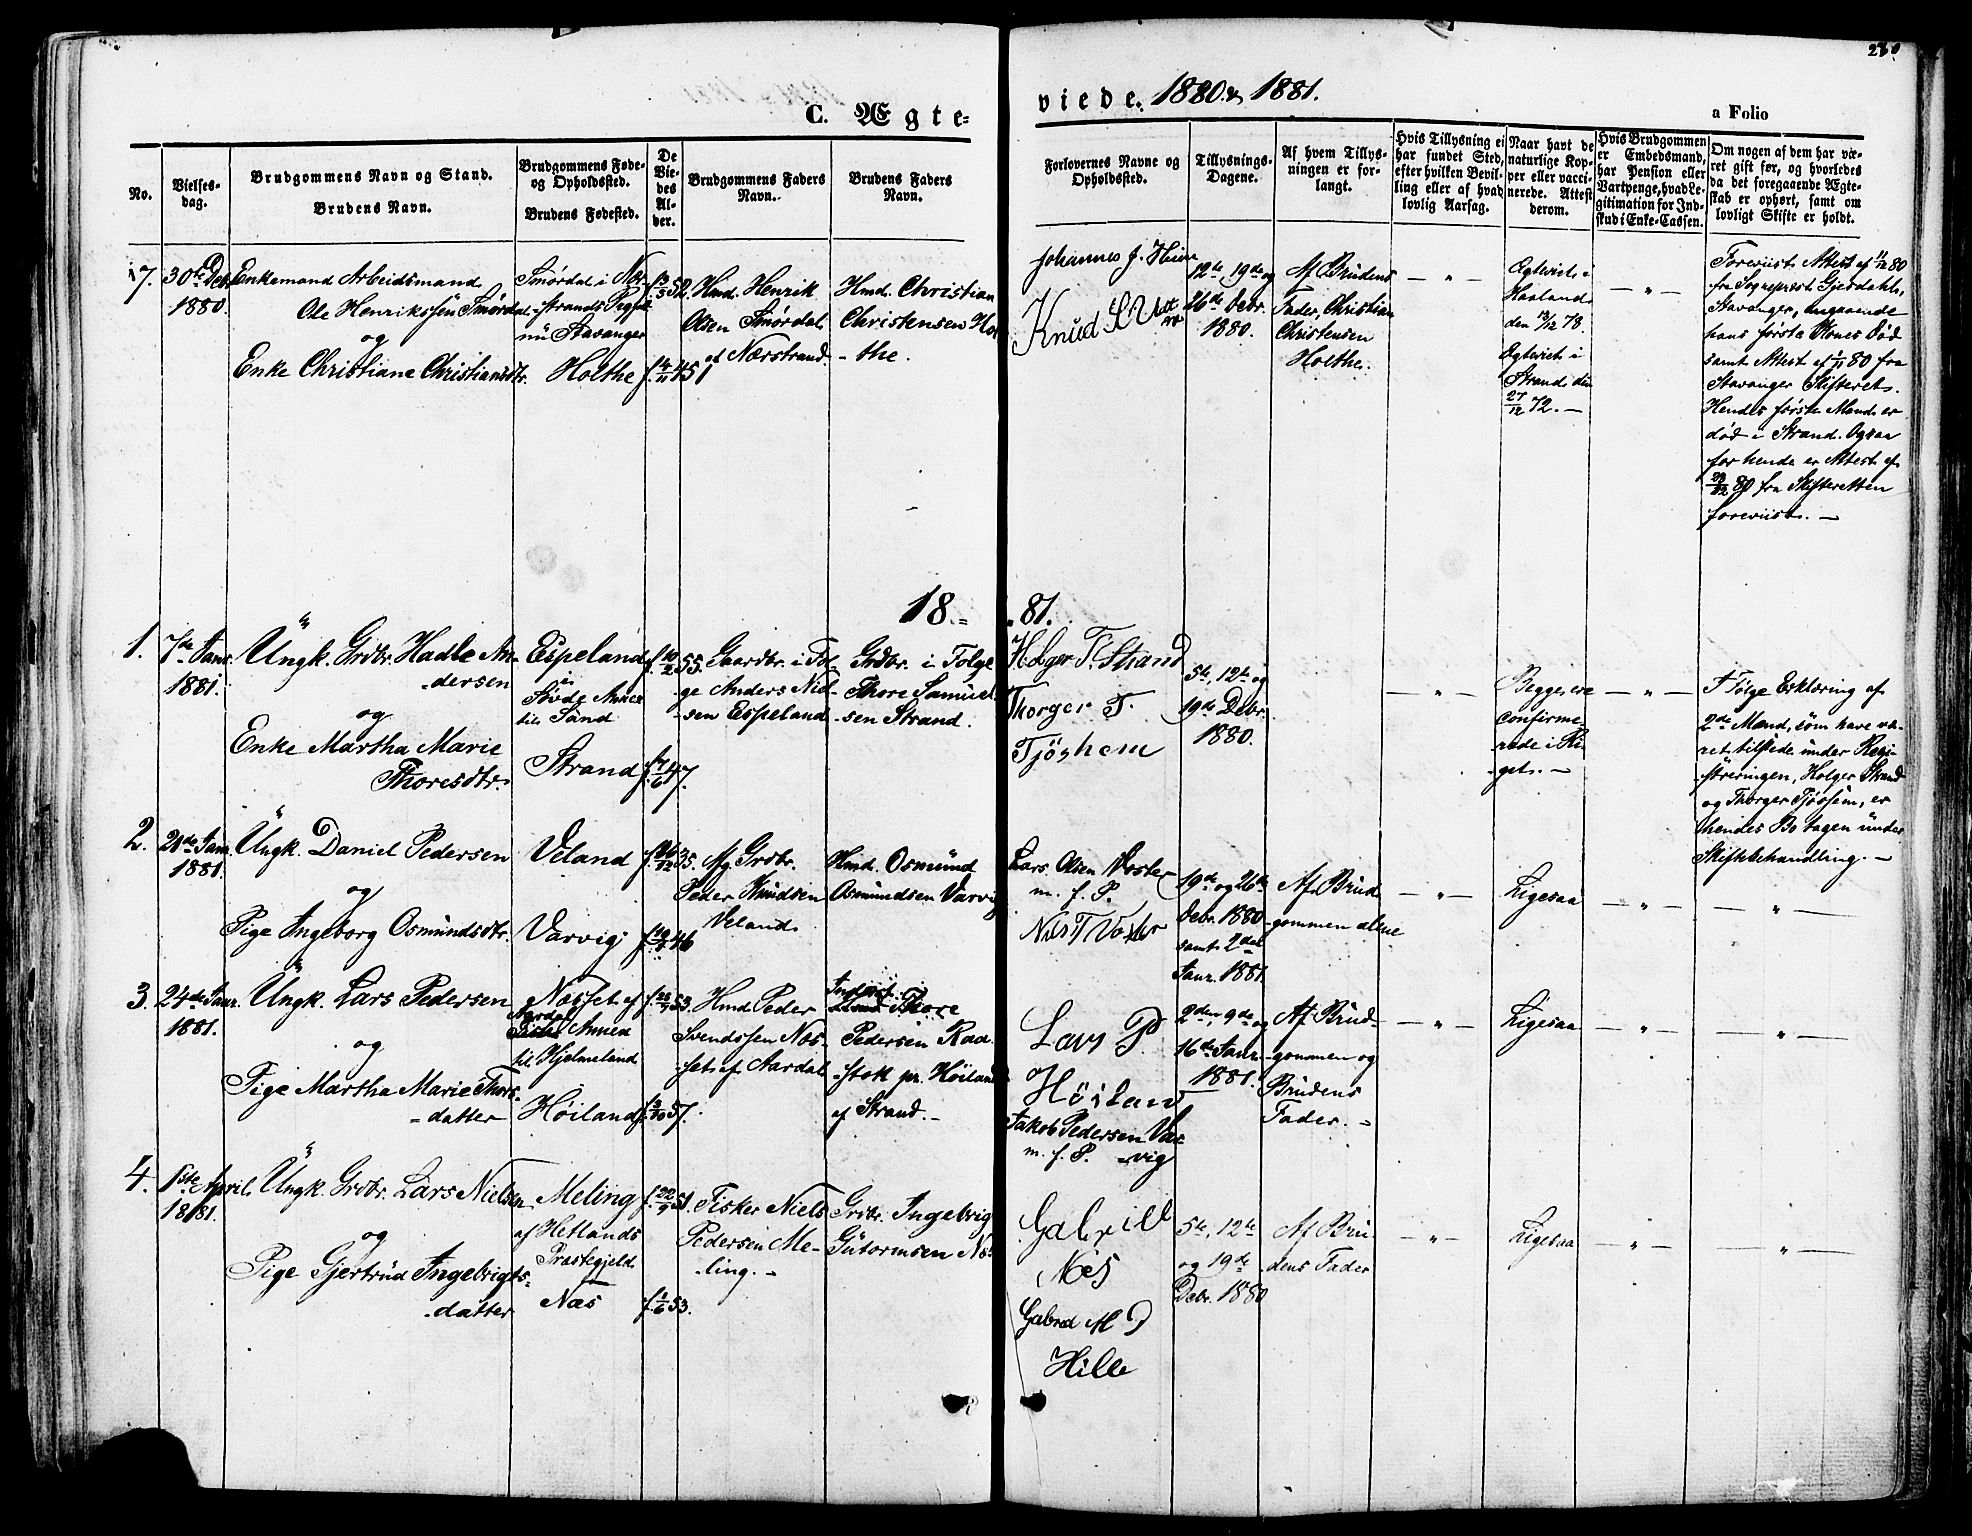 280
C. Ægte=
viede. 1880 & 1881.
a Folio
No.
Vielses-
dag.
Brudgommens Navn og Stand.
Brudens Navn.
Brudgommens Føde-
og Opholdssted.
Brudens Fødested.
De
Vie-
des
Al-
der.
Brudgommens Faders
Navn.
Brudens Faders
Navn.
Forlovernes Navne og
Opholdssted.
Tillysnings-
Dagene.
Af hvem Tillys-
ningen er for-
langt.
Hvis Tillysning ei
har fundet Sted,
efter hvilken Bevil-
ling eller af hvad
lovlig Aarsag.
Naar havt de
naturlige Kop-
per eller vacci-
nerede. Attest
derom.
Hvis Brudgommen
er Embedsmand,
har Pension eller
Vartpenge, hvad Le-
gitimation for Ind-
skud i Enke-Cassen.
Om nogen af dem har væ-
ret gift før, og hvorledes
da det foregaaende Ægte-
skab er ophørt, samt om
lovligt Skifte er holdt.
17.
30te Debr.
1880.
Enkemand Arbeidsmand
Ole Henrikssen Smørdal
og
Enke Christiane Christiansdtr.
Smørdal i Nær-
strands Pgjd
nu Stavanger
Holthe
52.
f. 4/11 451
Hmd. Henrik
Olsen Smørdal
af Nærstrand.
Hmd. Christian
Christensen Hol-
the.
Johannes J. Heien
Knud S.
12te, 19de og
26de Debr.
1880.
Af Brudens
Fader, Christian
Christensen
Holthe.
— " —
Egteviet i
Haaland
den 13/12 78.
Egteviet i
Strand den
27/12 72. —
— " —
Foreviist Attest af 11/12 80
fra Sogneprest Gjesdahl,
Stavanger, angaaende
hans første Kones Død
samt Attest af 1/11 80 fra
Stavanger Skifteret.
Hendes første Mand er
død i Strand. Ogsaa
for hende er Attest af
80 fra Skifteretten
foreviist. —
18 = " 81.
1.
7de Janr.
1881.
Ungk. Grdbr. Hadle An-
dersen
og
Enke Martha Marie
Thoresdtr.
Espeland
i
Søvde Annex
til Sand
Strand
f. 10/2 55.
f. 7/6 47.
Gaardbr. i Fol-
ge Anders Niel-
sen Espeland
Grdbr. i Folge
Thore Samuel-
sen Strand.
Holger T. Strand
Thorger T.
Tjøshem
5te, 12te og
19de Debr.
1880.
— " —
Begge ere
confirme-
rede i Ri-
get. —
— " —
I Følge Erklæring af
2de Mænd, som have væ-
ret tilstede under Regi-
streringen, Holger Strand
og Thorger Tjøssem, er
hendes Bo tagen under
Skiftebehandling. —
2.
21de Janr.
1881.
Ungk. Daniel Pedersen
og
Pige Ingeborg Osmundsdtr.
Veland
Varvig
35.
f. 19/7 46
Grdbr.
Peder Knudsen
Veland.
Hmd. Osmund
Osmundsen Varvig
Lars Olsen Voster
m. f. P.
Nils T Voster
19de og 26de
Debr. 1880
samt 2den
Janr. 1881.
Af Brud-
gommen alene
— " —
Ligesaa
— " —
— " —
3.
24de Janr.
1881.
Ungk. Lars Pedersen
og
Pige Martha Marie Thors-
datter
Næsset af
Aardal
Annex
til Hjelmeland
Høiland
53.
f. 3/10 57.
Hmd. Peder
Svendssen Næs-
set af Aardal
Thore
Pedersen Raa-
stok pr. Høiland
af Strand. —
Lars P
Høiland
Jakob Pedersen Var-
m. f. P. vig
2den, 9de og
16de Janr.
1881.
Af Brud-
gommen og
Brudens
Fader. —
— " —
Ligesaa
— " —
— " —
4.
1ste April
1881.
Ungk. Grdbr. Lars Nielsen
og
Pige Gjertrud Ingebrigts-
datter
Meling
af Hetlands
Præstegjeld
Næs
f. 22/9 51.
f. 1/6 53.
Fisker Niels
Pedersen Me-
ling. —
Grdbr. Ingebrig
Gutormsen Næs
Gabriell
Nes
Gabred M P
Hille
5te, 12te
og 19de
Debr. 1880
Af Bru-
dens Fader
— " —
Ligesaa
— " —
— " —